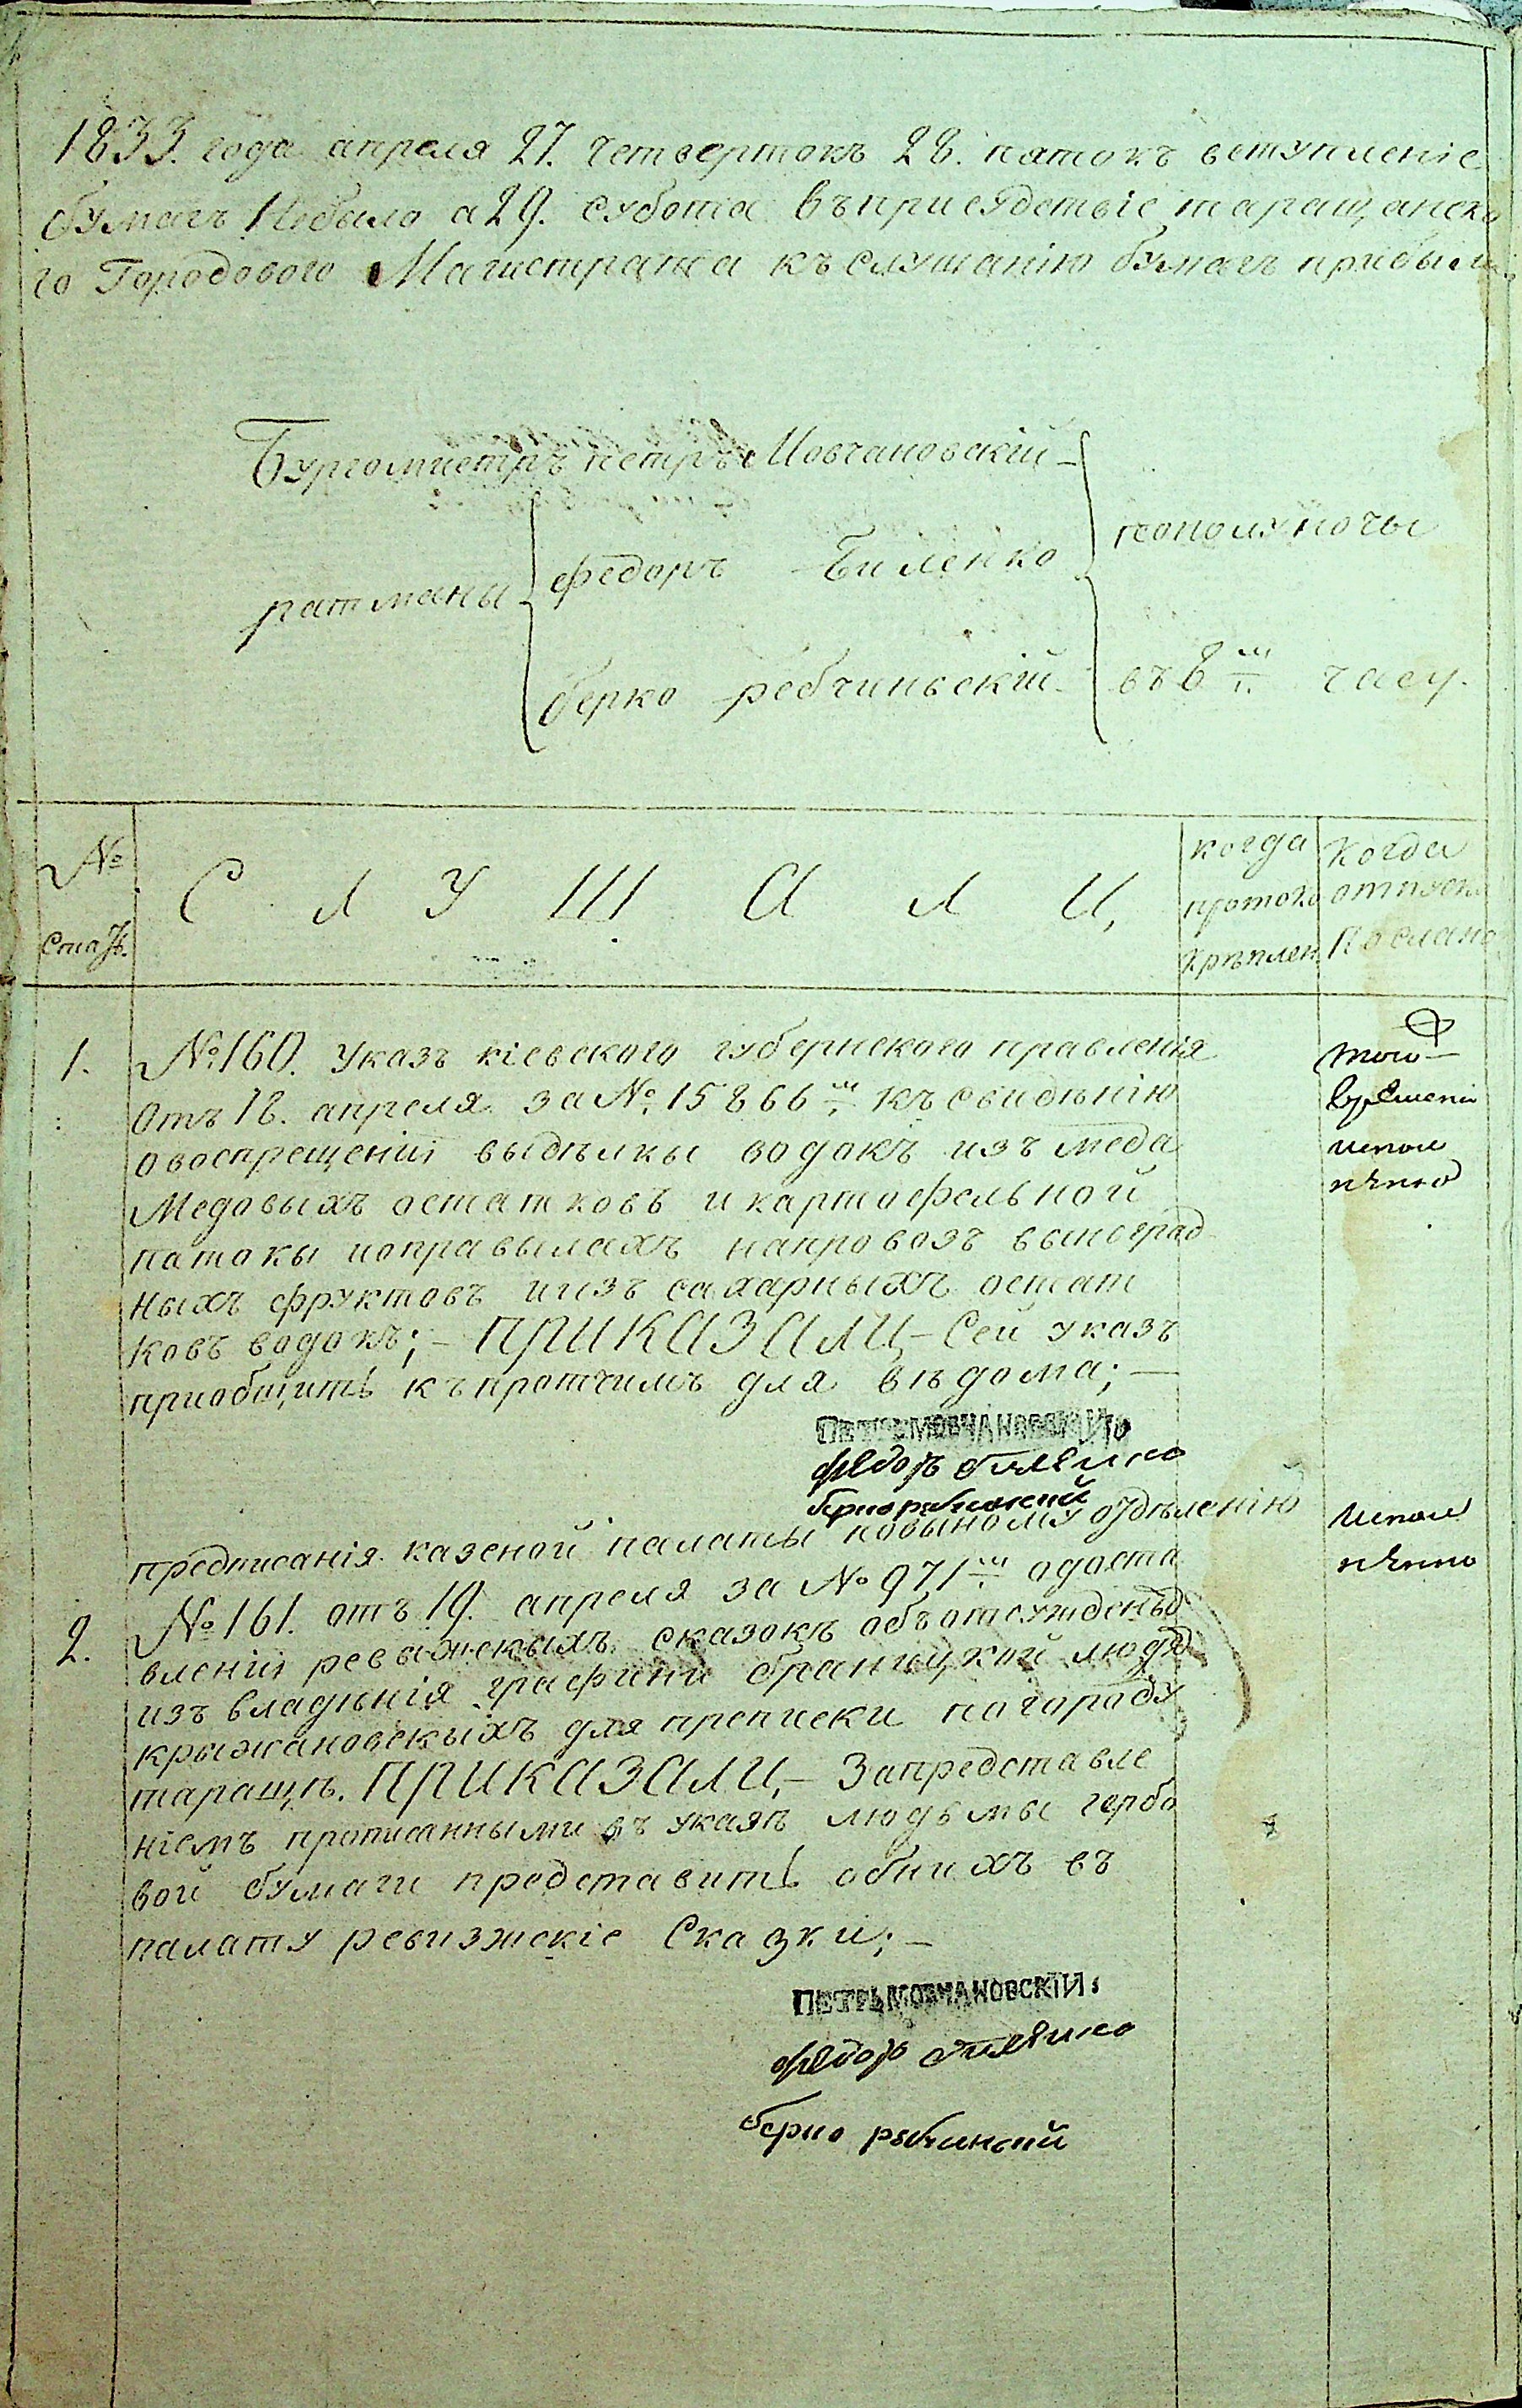 1833. года апреля 27. четвертокъ 28. пятокъ вступленіе
бумагъ Небыло а 29. субота въприсудствіе таращанско
го Городового Магистрата къслушанію бумагъ прибыли.
Бургомистръ петръ Мовчановскій
ратманы
федоръ Биленко
пополуночы
берко ребчиньскій
въ 8 ш. часу.
№
Стат.
С Л У Ш А Л И,
когда
протоко
крѣплен
Когда
отпуск
Послано
1. №160. Указъ кіевского губернского правленія
Отъ 18. апреля за №. 15866 ш. къ свидѣнію
овоспрещеніи выдѣлкы водокъ изъ меда
Медовыхъ остатковъ и картофельной
патокы ноправылахъ напровозъ выноград
ныхъ фруктовъ иизъ сахарныхъ остат
ковъ водокъ; – ПРИКАЗАЛИ, – Сей указъ
приобщить къпротчимъ для вѣдома; —
того
врѣмени
испол
нѣнно
ПЕТРЪ МОВЧАНОВСКІЙ
федоръ билѣнко
берко рѣбчинский
предписанія казеной палаты повыному отдѣленію
2. №161. отъ 19. апреля за № 971 ш. одоста
вленіи ревыжскыхъ сказокъ объ отсужденыхъ
изъ владѣнія графини браницкой людя
крыжановскыхъ для преписки погороду
таращѣ. ПРИКАЗАЛИ, – Запредставле
ніемъ прописанными въ указѣ людьмы гербо
вой бумаги представить обнихъ въ
палату ревизжскіе Сказки; –
испол
нѣнно
ПЕТРЪ МОВЧАНОВСКІЙ
федоръ билѣнко
берко рѣбчинский